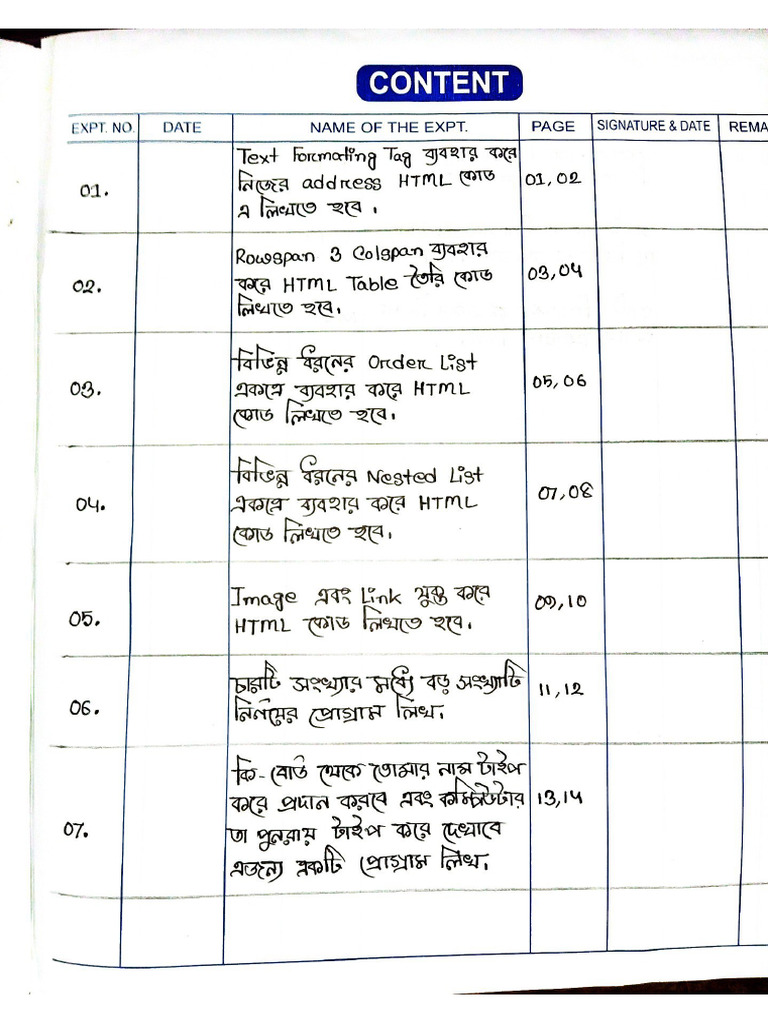 CONTENT
EXPT. NO. DATE NAME OF THE EXPT. PAGE SIGNATURE & DATE REMA
Text Formating Tag ব্যবহার করে
01. নিজের address HTML কোড 01,02
এ লিখতে হবে।
Rowspan ও Colspan ব্যবহার
02. করে HTML Table তৈরি কোড 03,04
লিখতে হবে।
বিভিন্ন ধরনের Order List
03. একত্রে ব্যবহার করে HTML 05,06
কোড লিখতে হবে।
বিভিন্ন ধরনের Nested List
04. একত্রে ব্যবহার করে HTML 07,08
কোড লিখতে হবে।
Image এবং Link যুক্ত করে 09,10
05. HTML কোড লিখতে হবে।
চারটি সংখ্যার মধ্যে বড় সংখ্যাটি 11,12
06. নির্ণয়ের প্রোগ্রাম লিখ।
কি-বোর্ড থেকে তোমার নাম টাইপ
করে প্রদান করবে এবং কম্পিউটার 13,14
07. তা পুনরায় টাইপ করে দেখাবে
এজন্য একটি প্রোগ্রাম লিখ।